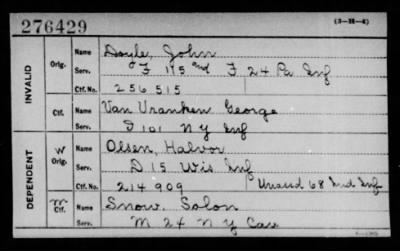 276429
(3-38-4)
INVALID
Orig. Name Doyle, John
Serv. F 115 2nd F 24 Pa Inf
Ctf. No. 256 515
Ctf. Name Van Vranken George
Serv. D 101 N Y Inf
DEPENDENT
W Orig. Name Olsen, Halvor
Serv. D 15 Wis Inf
Ctf. No. 214 909 Unassd 68 Ind Inf
M Ctf. Name Snow. Solon
Serv. M 24 N Y Cav